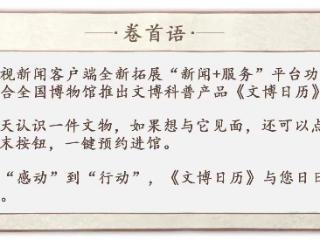 ·卷首语·
视新闻客户端全新拓展“新闻+服务”平台功
合全国博物馆推出文博科普产品《文博日历》
天认识一件文物，如果想与它见面，还可以点
末按钮，一键预约进馆。
“感动”到“行动”，《文博日历》与您日日
。